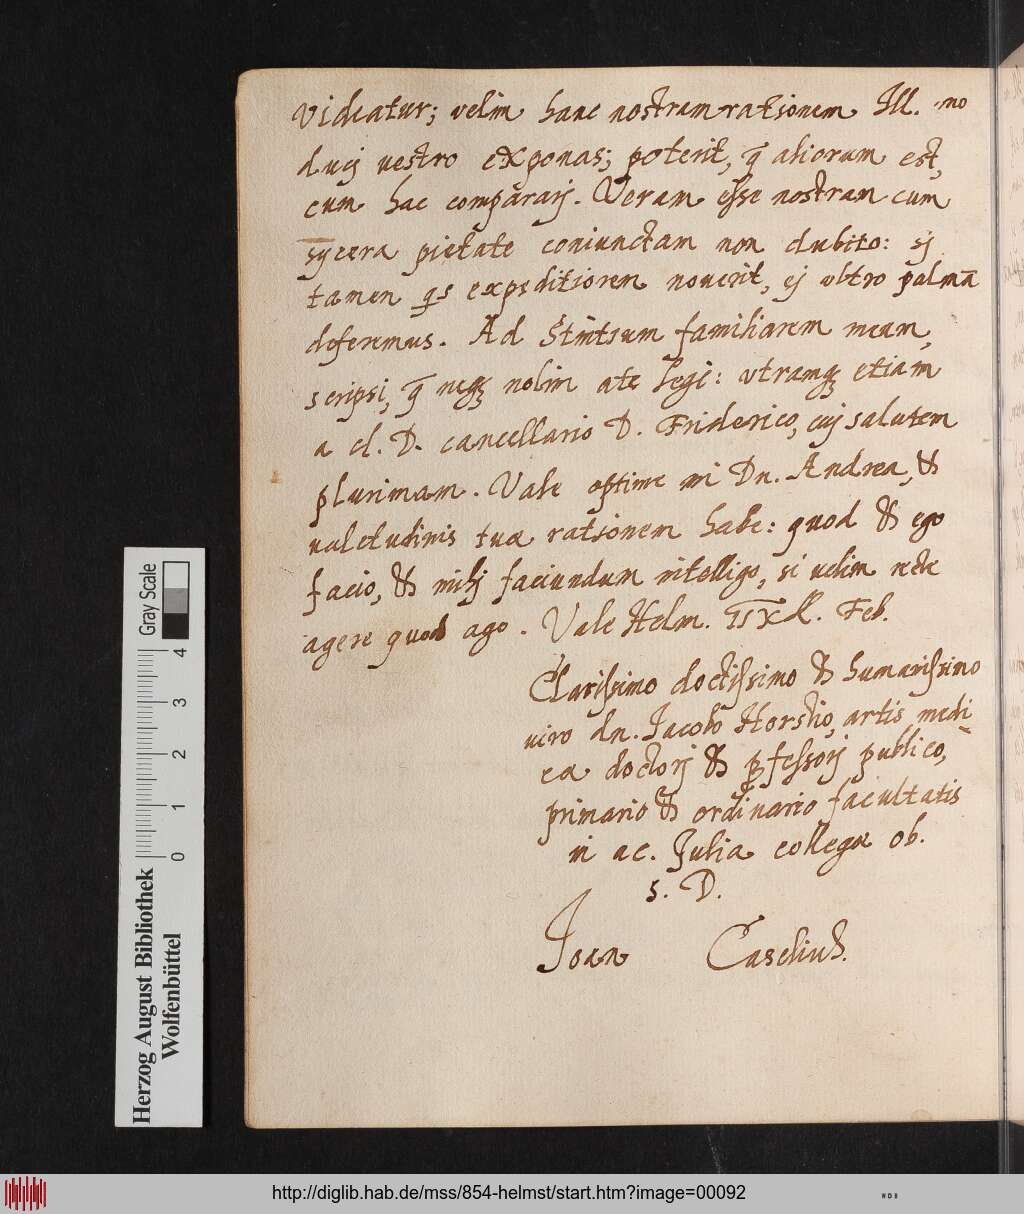 videatur; velim hanc nostram rationem Ill. no
ducij vestro exponas; poterit, q̄ aliorum est,
cum hac comparārj. Veram esse nostram cum
sỹcera pietate coniunctam non dubito: sj
tamen qs expeditiorem novcrit, ej vltro palmā
deferemus. Ad familiarem meam,
scripsi, q̄ neqȝ nolim a te legi: vtramqȝ etiam
a cl. D. cancellario D. Friderico, cuj salutem
plurimam. Vale optime mi Dn. Andrea, &
valetudinis tuæ rationem habe: quod & ego
facio, & mihj faciundum intelligo, si velim recte
agere quod ago. Vale Helm. Feb.
Clarissimo doctissimo & humanissimo
viro dn. Jacobo Horstio, artis medi⸗
cæ doctorj & ꝓfessorj publico,
primario & ordinario facultatis
in ac. Julia collegæ ob.
s. D.
Joan Caselius.
Gray Scale
0 1 2 3 4
Herzog August Bibliothek
Wolfenbüttel
http://diglib.hab.de/mss/854-helmst/start.htm?image=00092